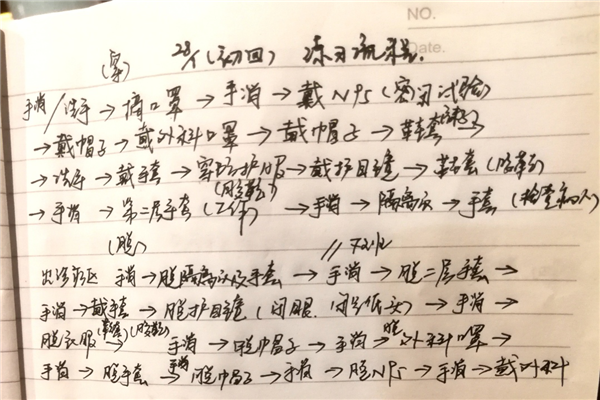 NO.
Date.
(穿)
28/1 (初回) 练习流程.
手消/洗手→摘口罩→手消→戴N95(密闭试验)
→戴帽子→戴外科口罩→戴帽子→鞋套
→洗手→戴手套→穿防护服→戴护目镜→靴套(胶靴)
→手消→第二层手套(工作)→手消→隔离衣→手套(检查病人)
(脱)
手消→脱隔离衣及手套→手消→脱二层手套→
手消→戴手套→脱护目镜(闭眼.低头)→手消→
脱衣服→手消→脱帽子→手消→脱外科口罩→
手消→脱手套→手消→脱帽子→手消→脱N95→手消→戴外科